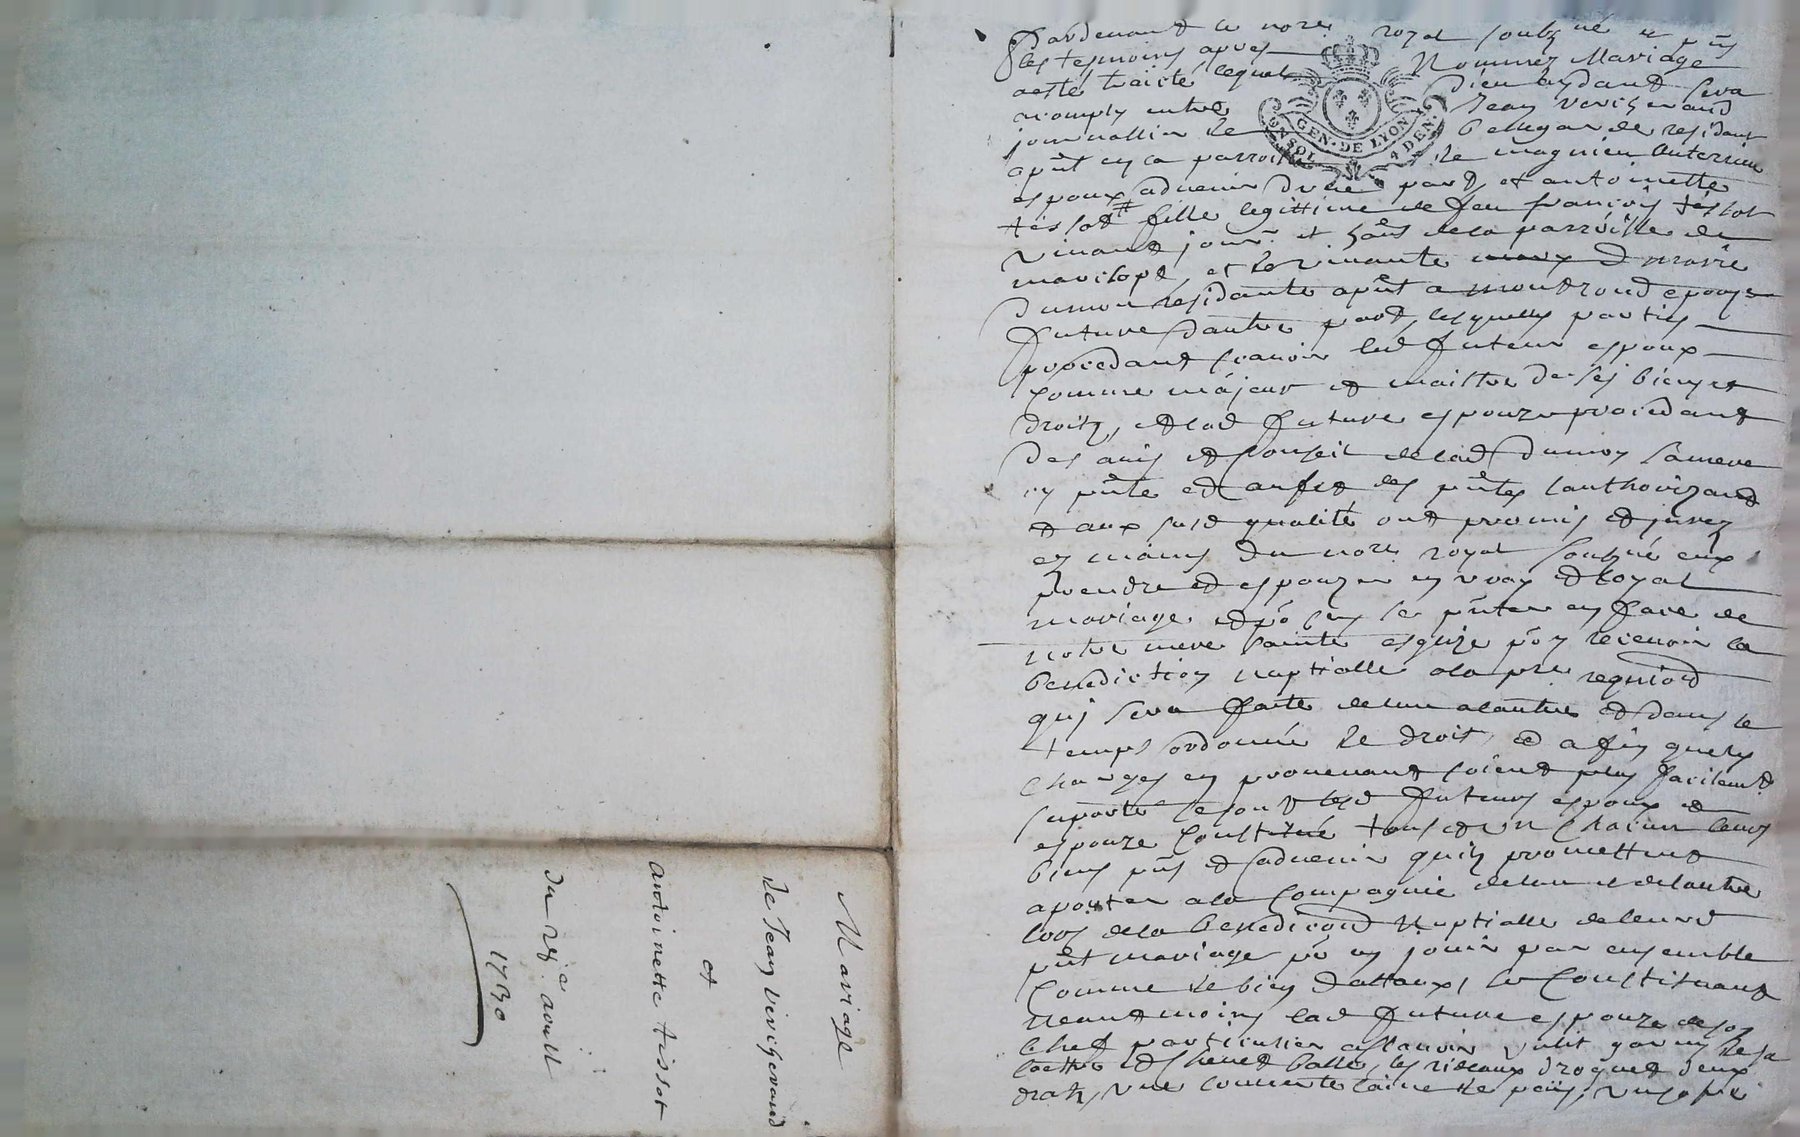 Mariage
de Jean Verichevaud
et
antoinette tissot
du 29e aoust
1730
GEN. DE LYON
UN SOL 4 DEN.
Pardevant le nore royal soubzné et pñs
les tesmoins apres Nommez Mariage
a esté traicté lequel Dieu aydant sera
acomply entre Jean
journallier de residant
apñt en la parroisse de magnieu
espoux advenir d'une part et antoinette
tissot fille legittime de feu françois tissot
vivant jour. et de la parroisse de
marclopt, et vivante marie
Dumon residante apñt a montrond epouze
future dautre part, lesquelles parties
procedant scavoir led futeur espoux
comme majeur et maistre de ses biens et
droits, et lad future espouze procedant
des avis et conseil de lad Dumon sa mere
cy pñte et des pñtes lauthorizant
et aux susd qualité ont promis et jurez
es mains du nore royal soubzné eux
prendre et espouzer en vray et loyal
mariage et po. se pñter en face de
notre mere sainte esglize po. y recevoir la
benediction nuptialle a la pre requiõn
qui sera faite de l'un a lautre et dans le
temps ordonné de droit, et a fin que les
charges en provenant soient plus facilemt
suporté se sont lesd futeurs espoux et
espouze constitué tous et un chacun leurs
biens pñs et advenir quils promettent
aporter a la compagnie de lun et de lautre
lors de la benediõn Nuptialle de leurd
pñt mariage po. en jouir par ensemble
comme de bien dottaux, se constituant
neantmoins lad future espouze de son
chef particulier a scavoir un lit garny de sa
coettre et chevet balle, les rideaux droguet deux
draps, une couverte laine de païs,